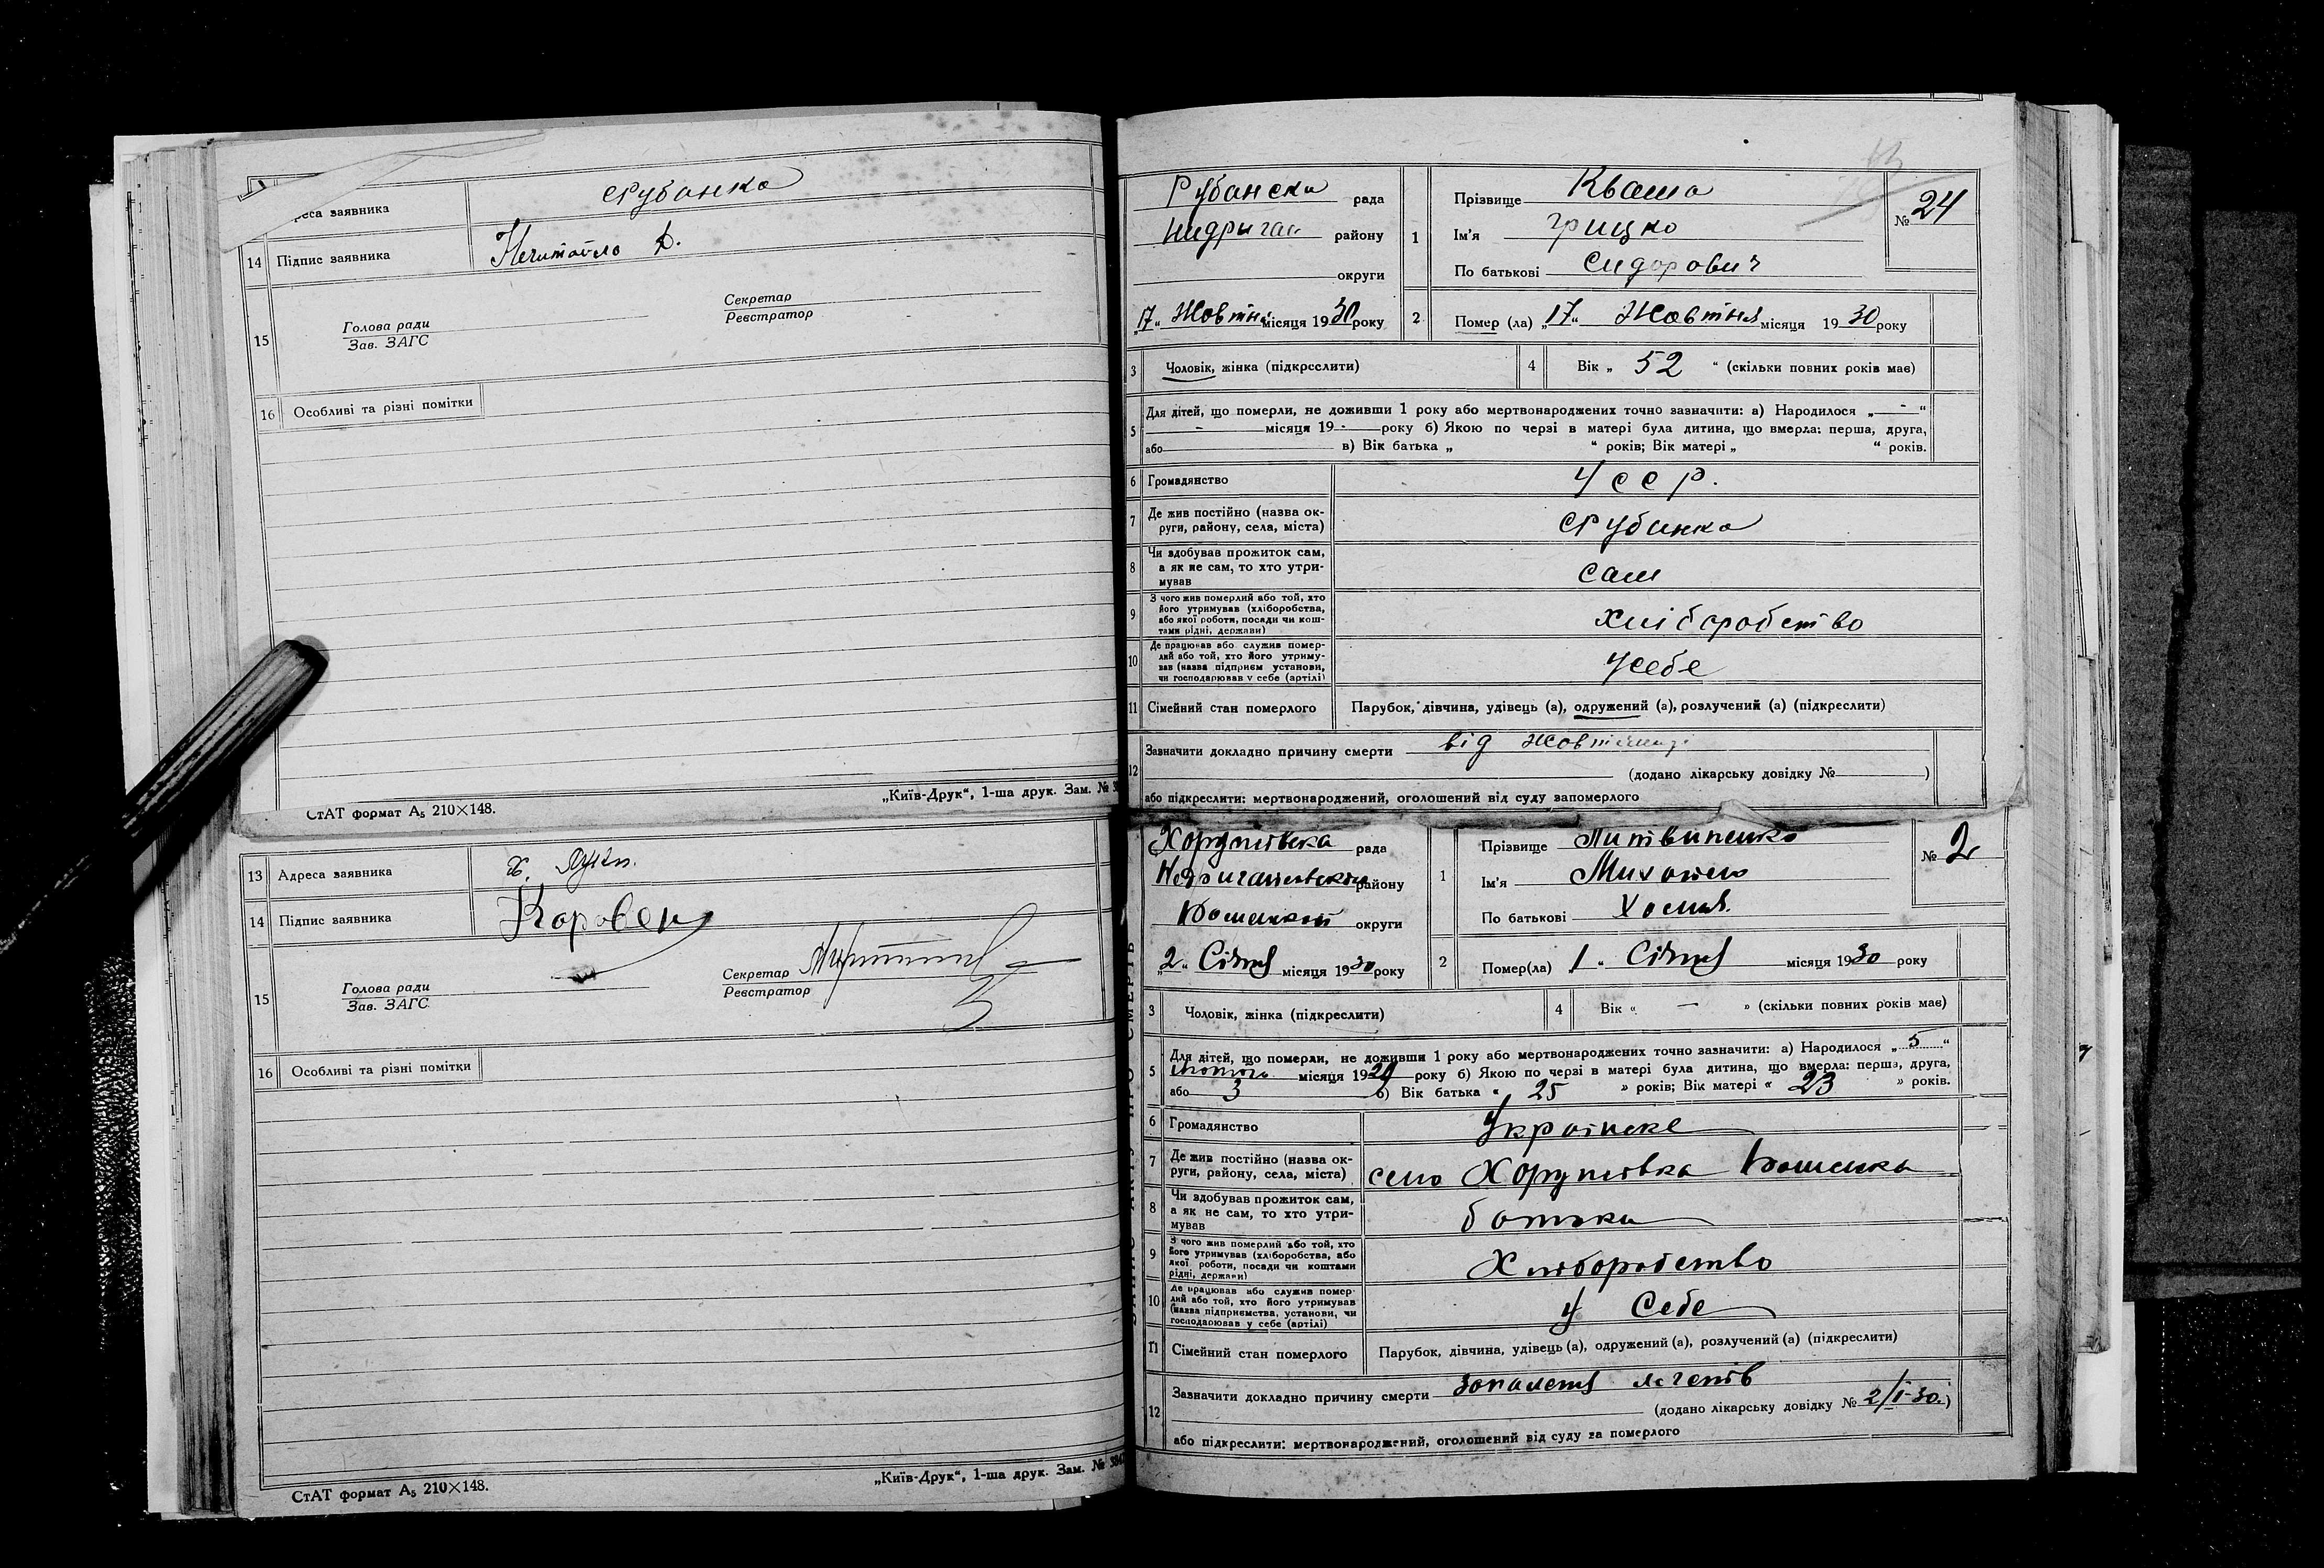 реса заявника
с Рубанка
14 Підпис заявника Нечитайло Д.
15
Голова ради
Зав. ЗАГС
Секретар
Реєстратор
16 Особливі та різні помітки
СтАТ формат А5 210×148.
„Київ-Друк“, 1-ша друк. Зам. №
13 Адреса заявника х.
14 Підпис заявника
15
Голова ради
Зав. ЗАГС
Секретар
Реєстратор
16 Особливі та різні помітки
СтАТ формат А5 210×148.
„Київ-Друк“, 1-ша друк. Зам. №
Рубанска рада
району
округи
„17“ Жовтня місяця 1930 року
1 Прізвище Кваша
Ім'я Грицко
По батькові Сидорович
№ 24
2 Помер (ла) „17“ Жовтня місяця 1930 року
3 Чоловік, жінка (підкреслити)
4 Вік „ 52 “ (скільки повних років має)
5 Для дітей, що померли, не доживши 1 року або мертвонароджених точно зазначити: а) Народилося „ - “
- місяця 19 - року б) Якою по черзі в матері була дитина, що вмерла: перша, друга,
або в) Вік батька „ “ років; Вік матері „ “ років.
6 Громадянство УССР.
7 Де жив постійно (назва ок-
руги, району, села, міста)
с Рубанка
8 Чи здобував прожиток сам,
а як не сам, то хто утри-
мував
сам
9 З чого жив померлий або той, хто
його утримував (хліборобства,
або якої роботи, посади чи кош-
тами рідні, держави)
хліборобство
10 Де працював або служив помер-
лий або той, хто його утриму-
вав (назва підприєм установи,
чи господарював у себе (артілі)
у себе
11 Сімейний стан померлого Парубок, дівчина, удівець (а), одружений (а), розлучений (а) (підкреслити)
12 Зазначити докладно причину смерти від
(додано лікарську довідку № )
або підкреслити: мертвонароджений, оголошений від суду запомерлого
рада
району
округи
„2“ Січня місяця 1930 року
1 Прізвище Литвиненко
Ім'я Михайло
По батькові
№ 2
2 Помер(ла) 1 „ Січня місяця 1930 року
3 Чоловік, жінка (підкреслити)
4 Вік « — » (скільки повних років має)
5 Для дітей, що померли, не доживши 1 року або мертвонароджених точно зазначити: а) Народилося „ 5 “
лютого місяця 1929 року б) Якою по черзі в матері була дитина, що вмерла: перша, друга,
або 3 в) Вік батька « 25 » років; Вік матері « 23 » років.
6 Громадянство Українське
7 Де жив постійно (назва ок-
руги, району, села, міста)
село
8 Чи здобував прожиток сам,
а як не сам, то хто утри-
мував
батьки
9 З чого жив померлий або той, хто
його утримував (хліборобства, або
якої роботи, посади чи коштами
рідні, держави)
Хліборобство
10 Де працював або служив помер-
лий або той, хто його утримував
(назва підприємства, установи, чи
господарював у себе (артілі)
у Себе
11 Сімейний стан померлого Парубок, дівчина, удівець (а), одружений (а), розлучений (а) (підкреслити)
12 Зазначити докладно причину смерти запалення легенів
(додано лікарську довідку № 2/I-30.)
або підкреслити: мертвонароджений, оголошений від суду за померлого